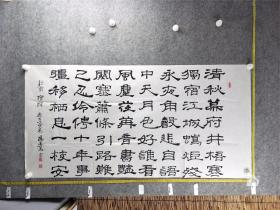 清秋幕府井梧寒
獨宿江城蠟炬殘
永夜角聲悲自語
中天月色好誰看
風塵荏苒音書絕
關塞蕭條行路難
已忍伶俜十年事
彊移棲息一枝安